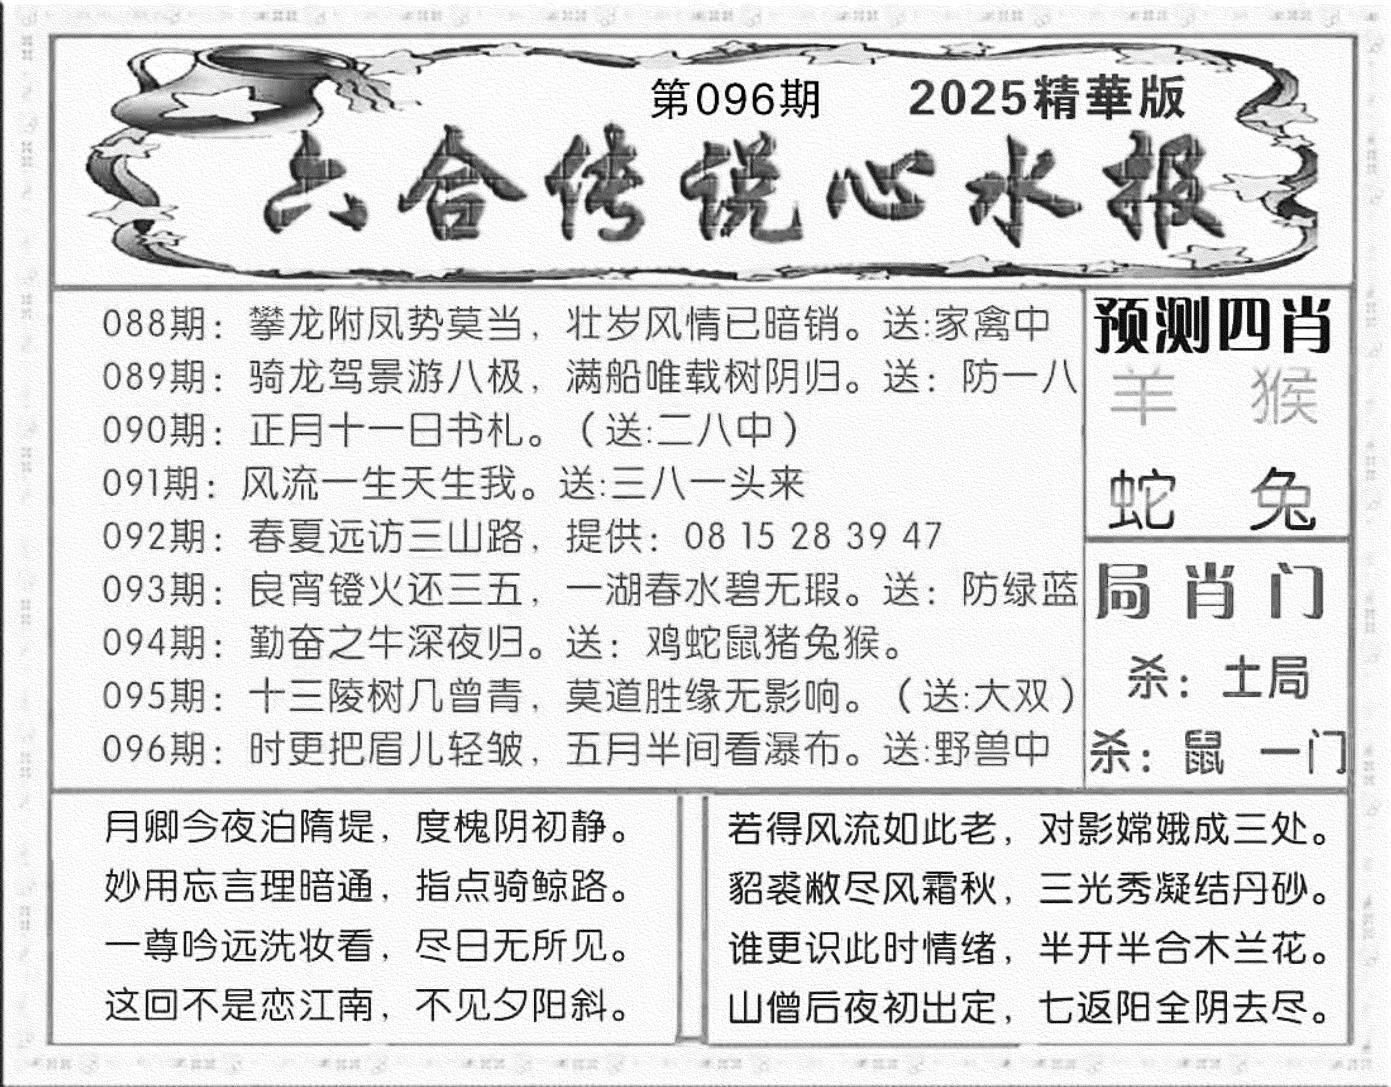 第096期 2025精華版
六合传说心水报
088期：攀龙附凤势莫当，壮岁风情已暗销。送:家禽中
089期：骑龙驾景游八极，满船唯载树阴归。送：防一八
090期：正月十一日书札。（送:二八中）
091期：风流一生天生我。送:三八一头来
092期：春夏远访三山路，提供：08 15 28 39 47
093期：良宵镫火还三五，一湖春水碧无瑕。送：防绿蓝
094期：勤奋之牛深夜归。送：鸡蛇鼠猪兔猴。
095期：十三陵树几曾青，莫道胜缘无影响。（送:大双）
096期：时更把眉儿轻皱，五月半间看瀑布。送:野兽中
预测四肖
羊 猴
蛇 兔
局肖门
杀：土局
杀：鼠 一门
月卿今夜泊隋堤，度槐阴初静。
妙用忘言理暗通，指点骑鲸路。
一尊吟远洗妆看，尽日无所见。
这回不是恋江南，不见夕阳斜。
若得风流如此老，对影嫦娥成三处。
貂裘敝尽风霜秋，三光秀凝结丹砂。
谁更识此时情绪，半开半合木兰花。
山僧后夜初出定，七返阳全阴去尽。